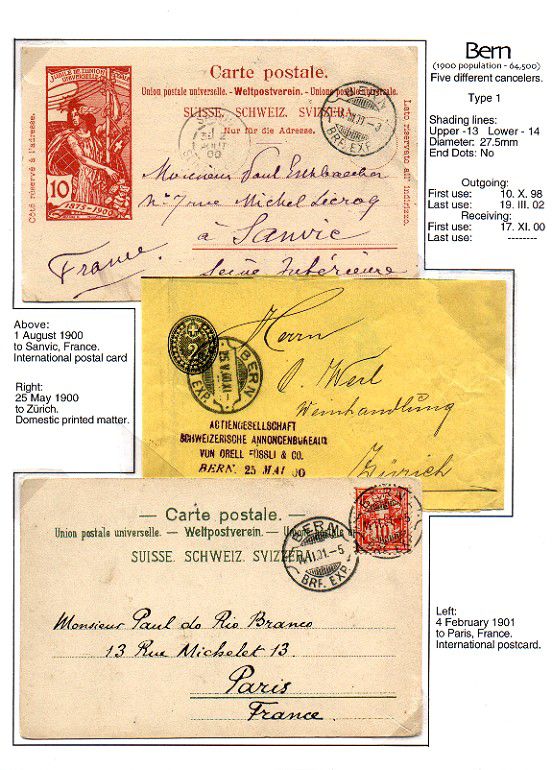 Bern
(1900 population - 64,500)
Five different cancelers.
Type 1
Shading lines:
Upper -13 Lower - 14
Diameter: 27.5mm
End Dots: No
Outgoing:
First use: 10. X. 98
Last use: 19. III. 02
Receiving:
First use: 17. XI. 00
Last use: --------
JUBILÉ DE L'UNION POSTALE
UNIVERSELLE
10
1875-1900
Côté réservé à l'adresse.
Carte postale.
Union postale universelle. - Weltpostverein. - Unione postale universale.
SUISSE. SCHWEIZ. SVIZZERA.
Nur für die Adresse.
Lato riservato all'indirizzo.
BERN
BRF. EXP.
AOUT
00
Monsieur Paul
No 7 rue Michel Lecroq
à Sanvic
France
Seine Inférieure
Above:
1 August 1900
to Sanvic, France.
International postal card
Right:
25 May 1900
to Zürich.
Domestic printed matter.
2
BERN
25. V. 00. XI
EXP.
Herrn
O. Werl
Weinhandlung
Zürich
ACTIENGESELLSCHAFT
SCHWEIZERISCHE ANNONCENBUREAUX
VON ORELL FÜSSLI & CO.
BERN. 25 MAI 00
— Carte postale. —
Union postale universelle. — Weltpostverein. — Unione postale universale.
SUISSE. SCHWEIZ. SVIZZERA.
BERN
II. 01. - 5
BRF. EXP.
10
Monsieur Paul do Rio Branco
13 Rue Michelet 13
Paris
France
Left:
4 February 1901
to Paris, France.
International postcard.